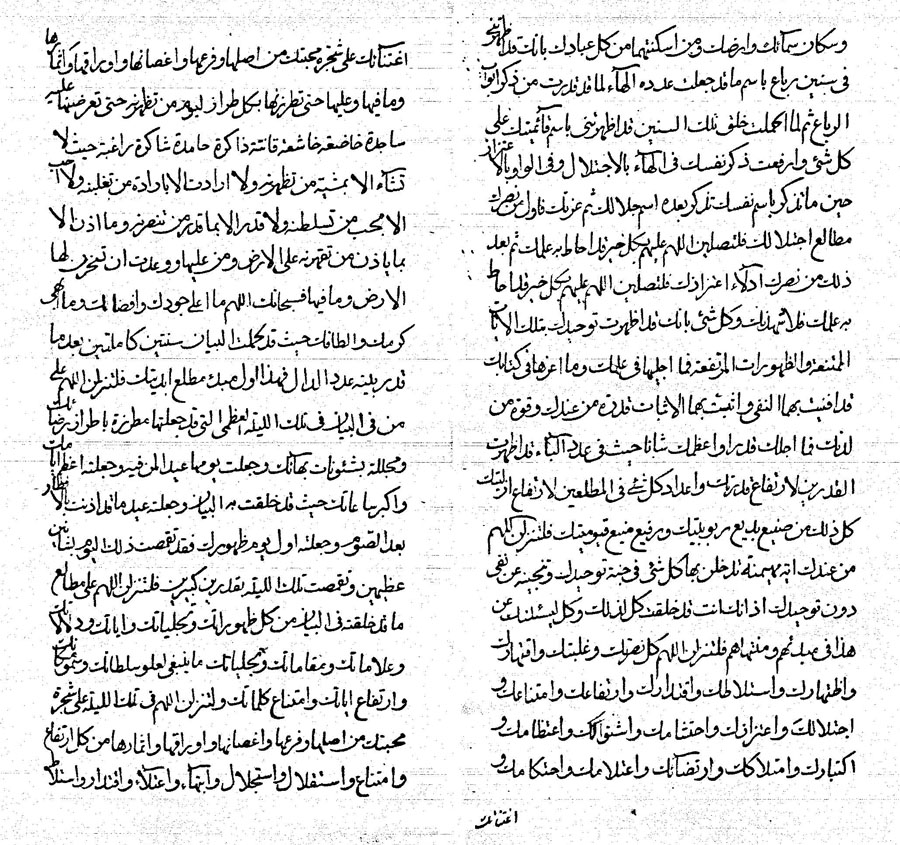 وسكان سمائك وارضك ومن اسكنتهما من كل عبادك بانك قد اظهرتني
في سنين رباع باسم ما قد جعلت عدده الهاء لما قد قدرت من ذكر ابواب
الرباع ثم لما اكملت خلق تلك السنين قد اظهرتني باسم قائميتك على
كل شئ وارفعت ذكر نفسك في الهاء بالاجتلال وفي الواو بالاعتزاز
حين ما تذكر باسم نفسك تذكر بعده اسم جلالك ثم عزتك فاول من نصرك
مطالع اجتلالك فلتصلين اللهم عليهم بكل خير قد احاط به علمك ثم بعد
ذلك من نصرك ادلاء اعتزازك فلتصلين اللهم عليهم بكل خير قد احاط
به علمك فلاشهدنك وكل شئ بانك قد اظهرت توحيدك بتلك الايات
الممتنعة والظهورات المرتفعة فما اجلها في علمك وما اعزها في كتابك
قد افنيت بها النفي واثبت بها الاثبات قدرة من عندك وقوة من
لدنك فما اجلك قدرا واعظمك شانا حيث في عدد الباء قد اظهرت
القدرين لارتفاع قدرتك واعداد كل شئ في المطلعين لارتفاع ازليتك
كل ذلك من صنيع بديع ربوبيتك ورفيع منيع قيوميتك فلتنزلن اللهم
من عندك اية مهيمنة تدخلن بها كل شئ في جنة توحيدك وتنجينه عن نفي
دون توحيدك اذ انك انت قد خلقت كل لذلك وكل يسئلنك عن
هذا في مبدئهم ومنتهاهم فلتنزلن اللهم كل نصرتك وغلبتك واقتهارك
واظتهارك واستلاطك واقتدارك وارتفاعك وامتناعك و
اجتلالك واعتزازك واحتشامك واشتواكك واعتظامك و
اكتبارك وامتلاكك وارتضائك واعتلامك واحتكامك و
اغتنائك
اغتنائك على شجرة محبتك من اصلها وفرعها واغصانها واوراقها واثمارها
وما فيها وعليها حتى تطرزنها بكل طراز ليوم من تظهرنه حتى تعرضنها عليه
ساجدة خاضعة خاشعة قانتة ذاكرة حامدة شاكرة راغبة حيث لا
تشاء الا بمشية من تظهرنه ولا ارادت الا بارادة من تغلبنه ولا احب
الا بحب من تسلطنه ولا قدر الا بما قدر من تنصرنه وما اذن الا
بما ياذن من تقهرنه على الارض ومن عليها ووعدت ان تسخرن لها
الارض وما فيها فسبحانك اللهم ما اعلى جودك وافضالك وما ابهى
كرمك والطافك حيث قد كملت البيان سنتين كاملتين بعد ما
قد ربيته عدد الدال فهذا اول صبك مطلع ابديتك فلتنزلن اللهم على
من في البيان في تلك الليلة العظمى التي قد جعلتها مطرزة باطراز رضائك
ومجللة بشئونات بهائك وجعلت يومها عيدا لمن فيه وجعلته اعظم اياتك
واكبر بهاءاتك حيث قد خلقت به البيان وجعلته عيد ما قد اذنت بالافطار
بعد الصوم وجعلته اول يوم ظهورك فقد تقمصت ذلك اليوم بشانين
عظيمين وتقمصت تلك الليلة بقدرين كبيرين فلتنزلن اللهم على مطالع
ما قد خلقته في البيان من كل ظهوراتك وتجلياتك واياتك ودلالاتك
وعلاماتك ومقاماتك وتجلياتك ما ينبغي لعلو سلطانك وسمو مليكك
وارتفاع اياتك وامتناع كلماتك ولتنزلن اللهم في تلك الليلة على شجرة
محبتك من اصلها وفرعها واغصانها واوراقها واثمارها من كل ارتفاع
وامتناع واستقلال واستجلال وابتهاء واعتلاء واقتدار واستلاط